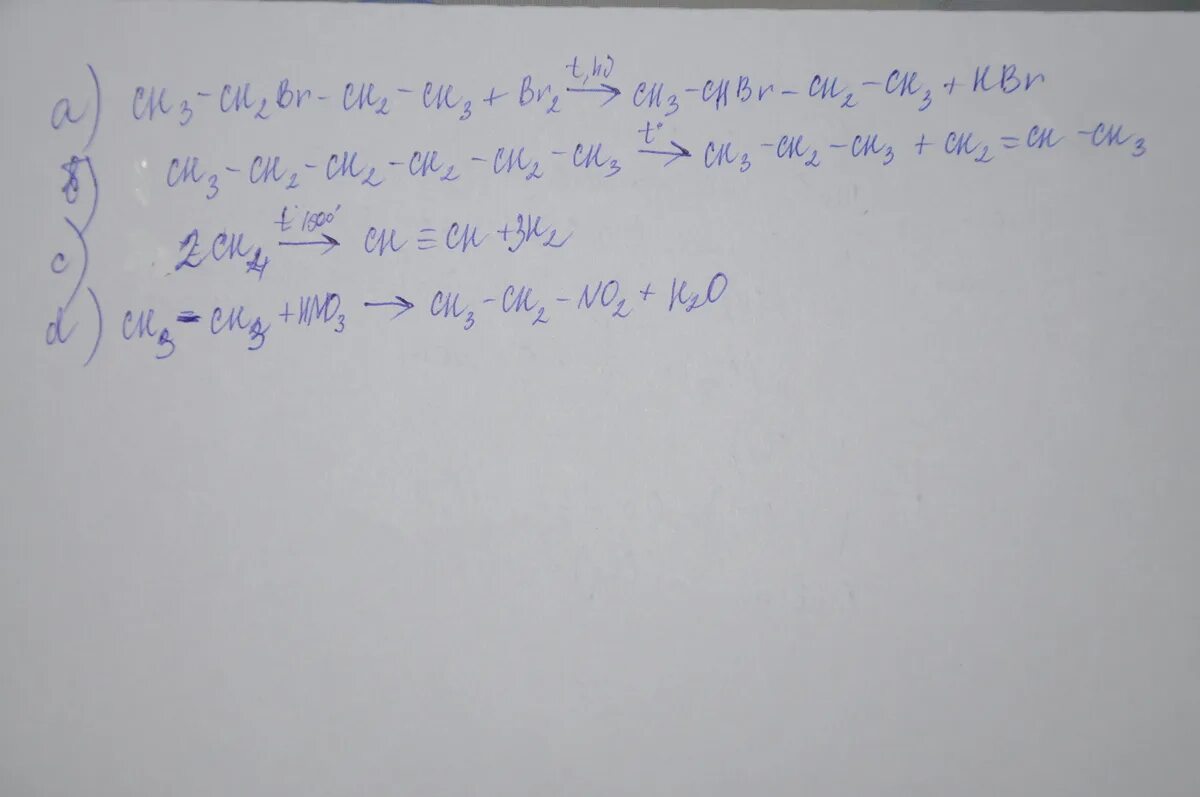 a) CH₃-CH₂Br-CH₂-CH₃ + Br₂ →(t, hν) CH₃-CHBr-CH₂-CH₃ + HBr
b) CH₃-CH₂-CH₂-CH₂-CH₂-CH₃ →(t°) CH₃-CH₂-CH₃ + CH₂=CH-CH₃
c) 2CH₄ →(t°1500°) CH≡CH + 3H₂
d) CH₃-CH₃ + HNO₃ → CH₃-CH₂-NO₂ + H₂O